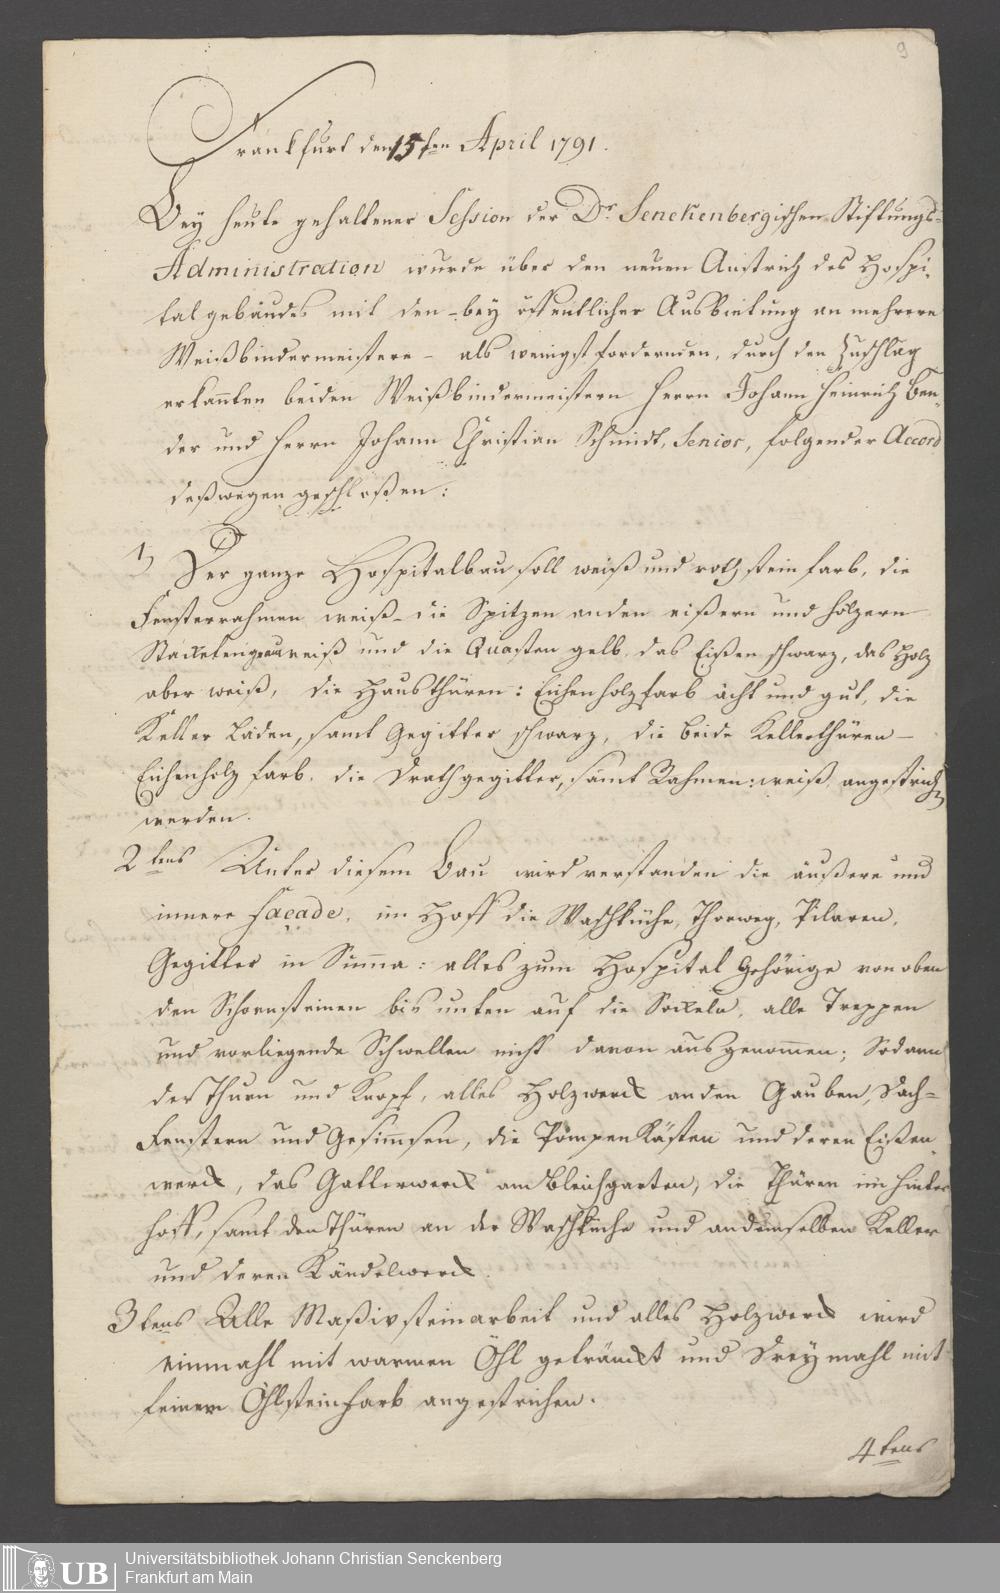 9
Frankfurt den 15ten April 1791.
Bey heute gehaltener Session der Dr. Senckenbergischen Stiftungs-
Administration wurde über den neuen Anstrich des Hospi-
talgebäudes mit den - bey öffentlicher Ausbietung an mehrere
Weißbindermeistere - als wenigst fordernden, durch den Zuschlag
erkannten beiden Weißbindermeistern Herrn Johann Heinrich Ben-
der und Herrn Johann Christian Schmidt, Senior, folgender Accord
deßwegen geschloßen:
1) Der ganze Hospitalbau soll weiß und roth steinfarb, die
Fensterrahmen weiß - die Spitzen an den eißern und hölzern
Stacketen weiß und die Quasten gelb, das Eißen schwarz, das Holz
aber weiß, die Hausthüren: Eichenholzfarb ächt und gut, die
Keller Läden, samt Gegitter schwarz, die beide Kellerthüren -
Eichenholz farb, die Drathgegitter, samt Rahmen: weiß, angestrichen
werden.
2tens Unter diesem Bau wird verstanden die äußere und
innere Facade, im Hoff die Waschküche, Thorweg, Pilaren,
Gegitter in Summa: alles zum Hospital Gehörige von oben
den Schornsteinen bis unten auf die Sockeln, alle Treppen
und vorliegende Schwellen nicht davon ausgenommen; Sodann
der Thurn und Knopf, alles Holzwerck an den Gauben, Dach-
Fenstern und Gesimsen, die Pompen Kästen und deren Eißen-
werck, das Gatterwerck am Bleichgarten, die Thüren im Hinter
hoff, samt den Thüren an der Waschküche und an demselben Keller
und deren Kändelwerck.
3tens Alle Maßivsteinarbeit und alles Holzwerck wird
einmahl mit warmen Öhl getränckt und Dreymahl mit
feinem Öhlsteinfarb angestrichen.
4tens
UB
Universitätsbibliothek Johann Christian Senckenberg
Frankfurt am Main